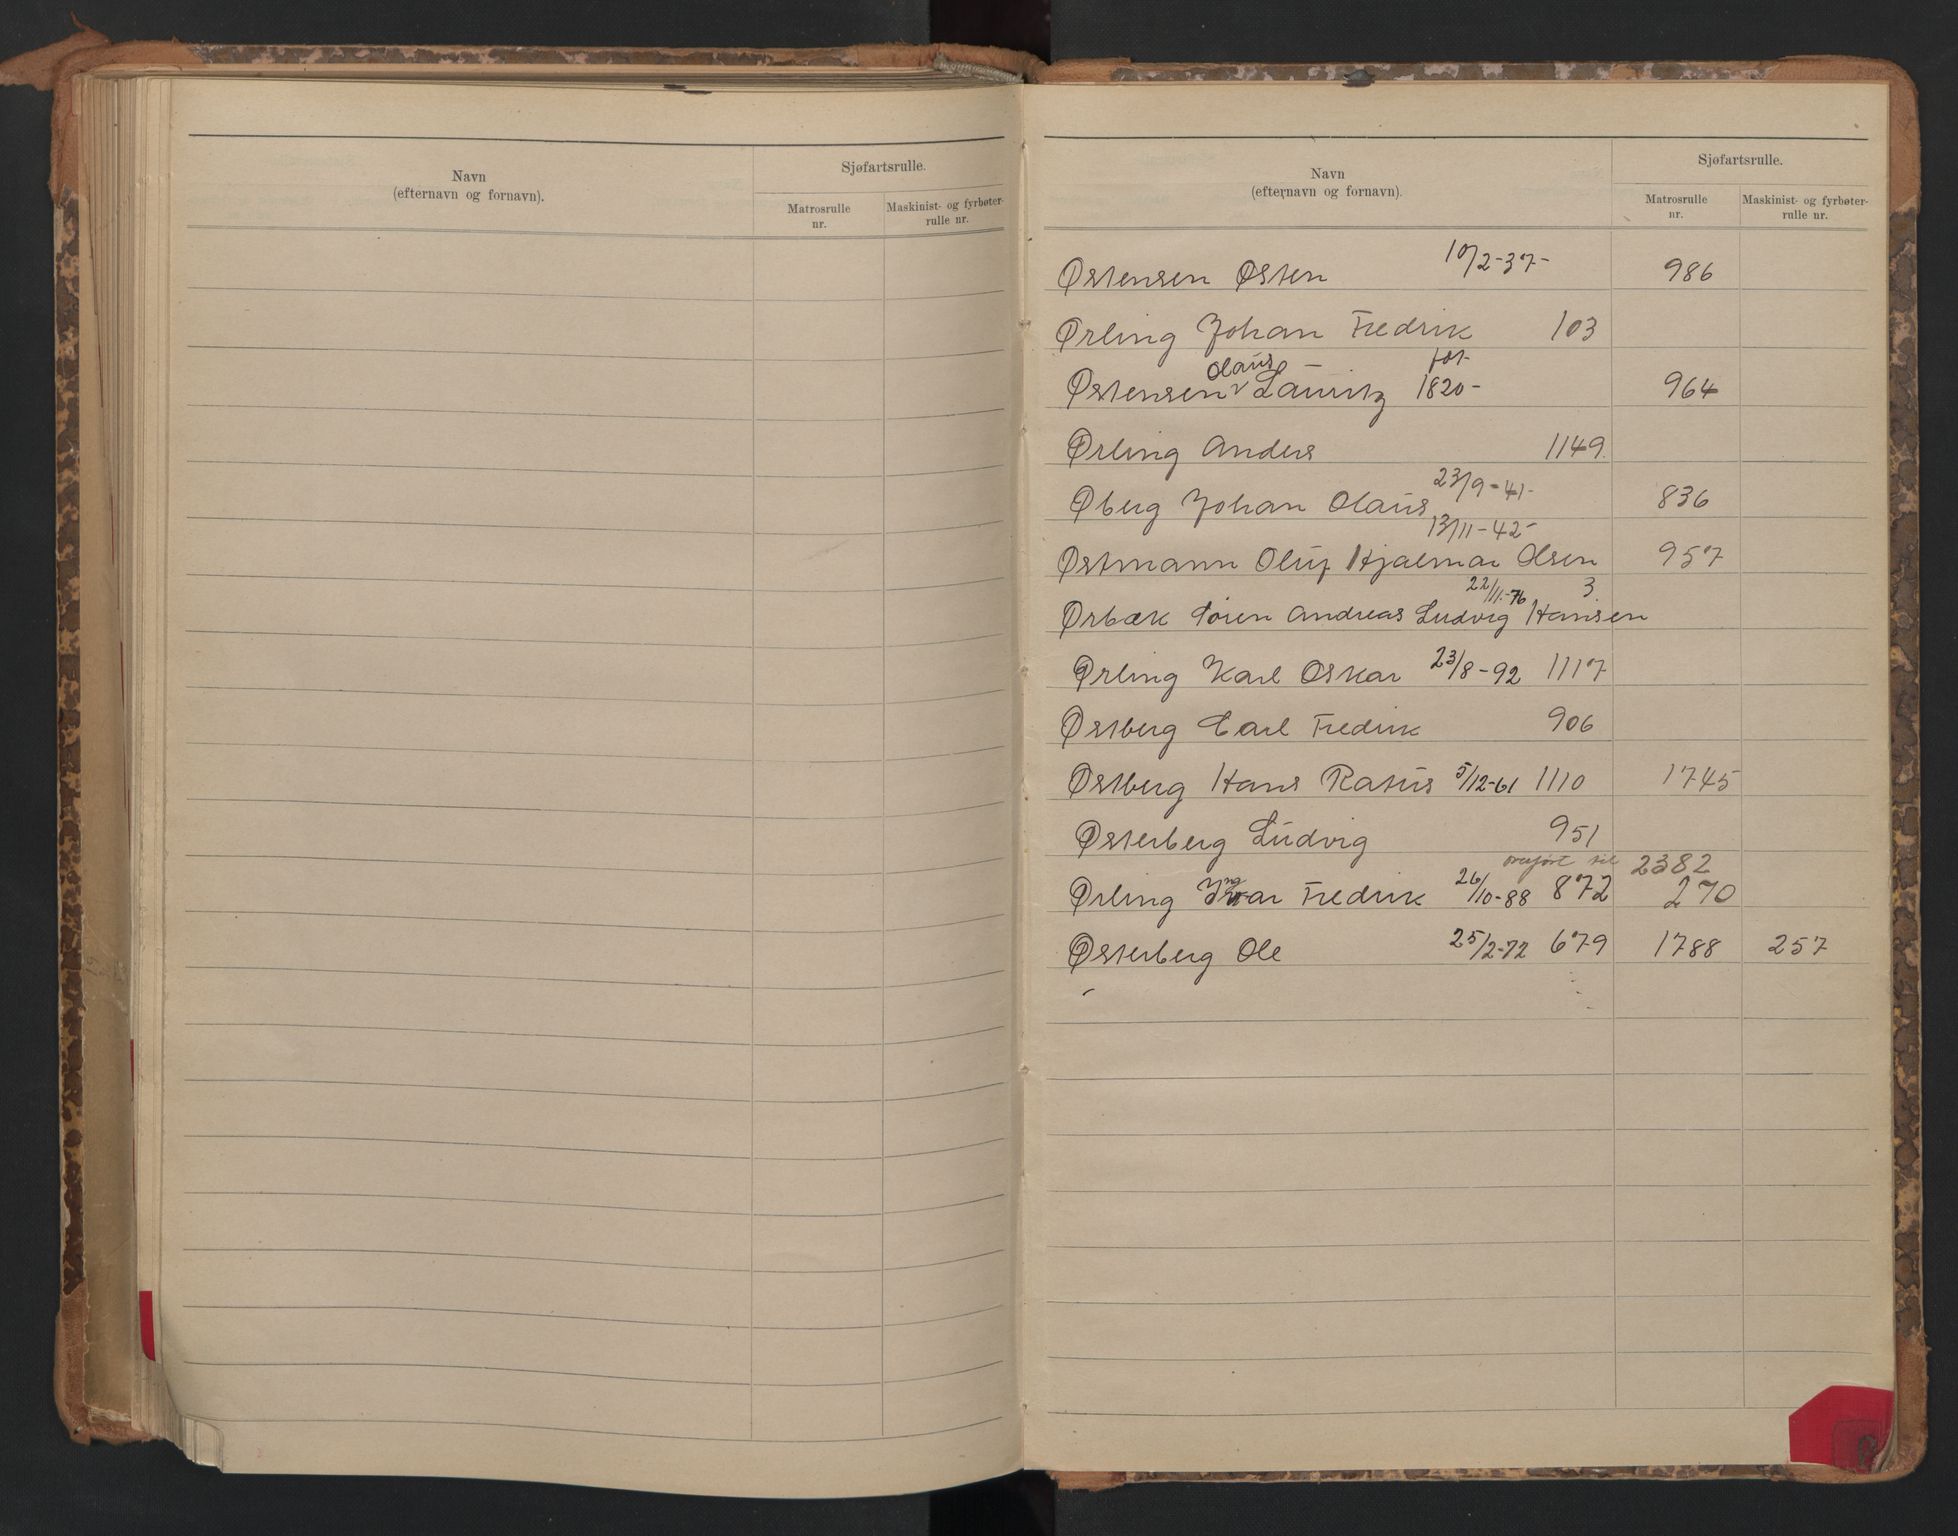 Navn
(efternavn og fornavn).
Sjøfartsrulle.
Matrosrulle
nr.
Maskinist- og fyrbøter-
rulle nr.
Navn
(efternavn og fornavn).
Sjøfartsrulle.
Matrosrulle
nr.
Maskinist- og fyrbøter-
rulle nr.
Østensen Østen 10/2-37- 986
Ørling Johan Fredrik 103
Olaus
Østensen Lauritz 1820- 964
Ørling Anders 1149.
Øberg Johan Olaus 23/9-41- 836
13/11-42-
Østmann Oluf Hjalmar Olsen 957
22/11.-76 3.
Ørbæk Søren Andreas Ludvig Hansen
Ørling Karl Oskar 23/8-92 1117
Østberg Carl Fredrik 906
Østberg Hans Rasus 5/12-61 1110 1745
Østerberg Ludvig 951
overført til 2382
Ørling Fredrik 26/10-88 872 270
Østerberg Ole 25/2-72 679 1788 257